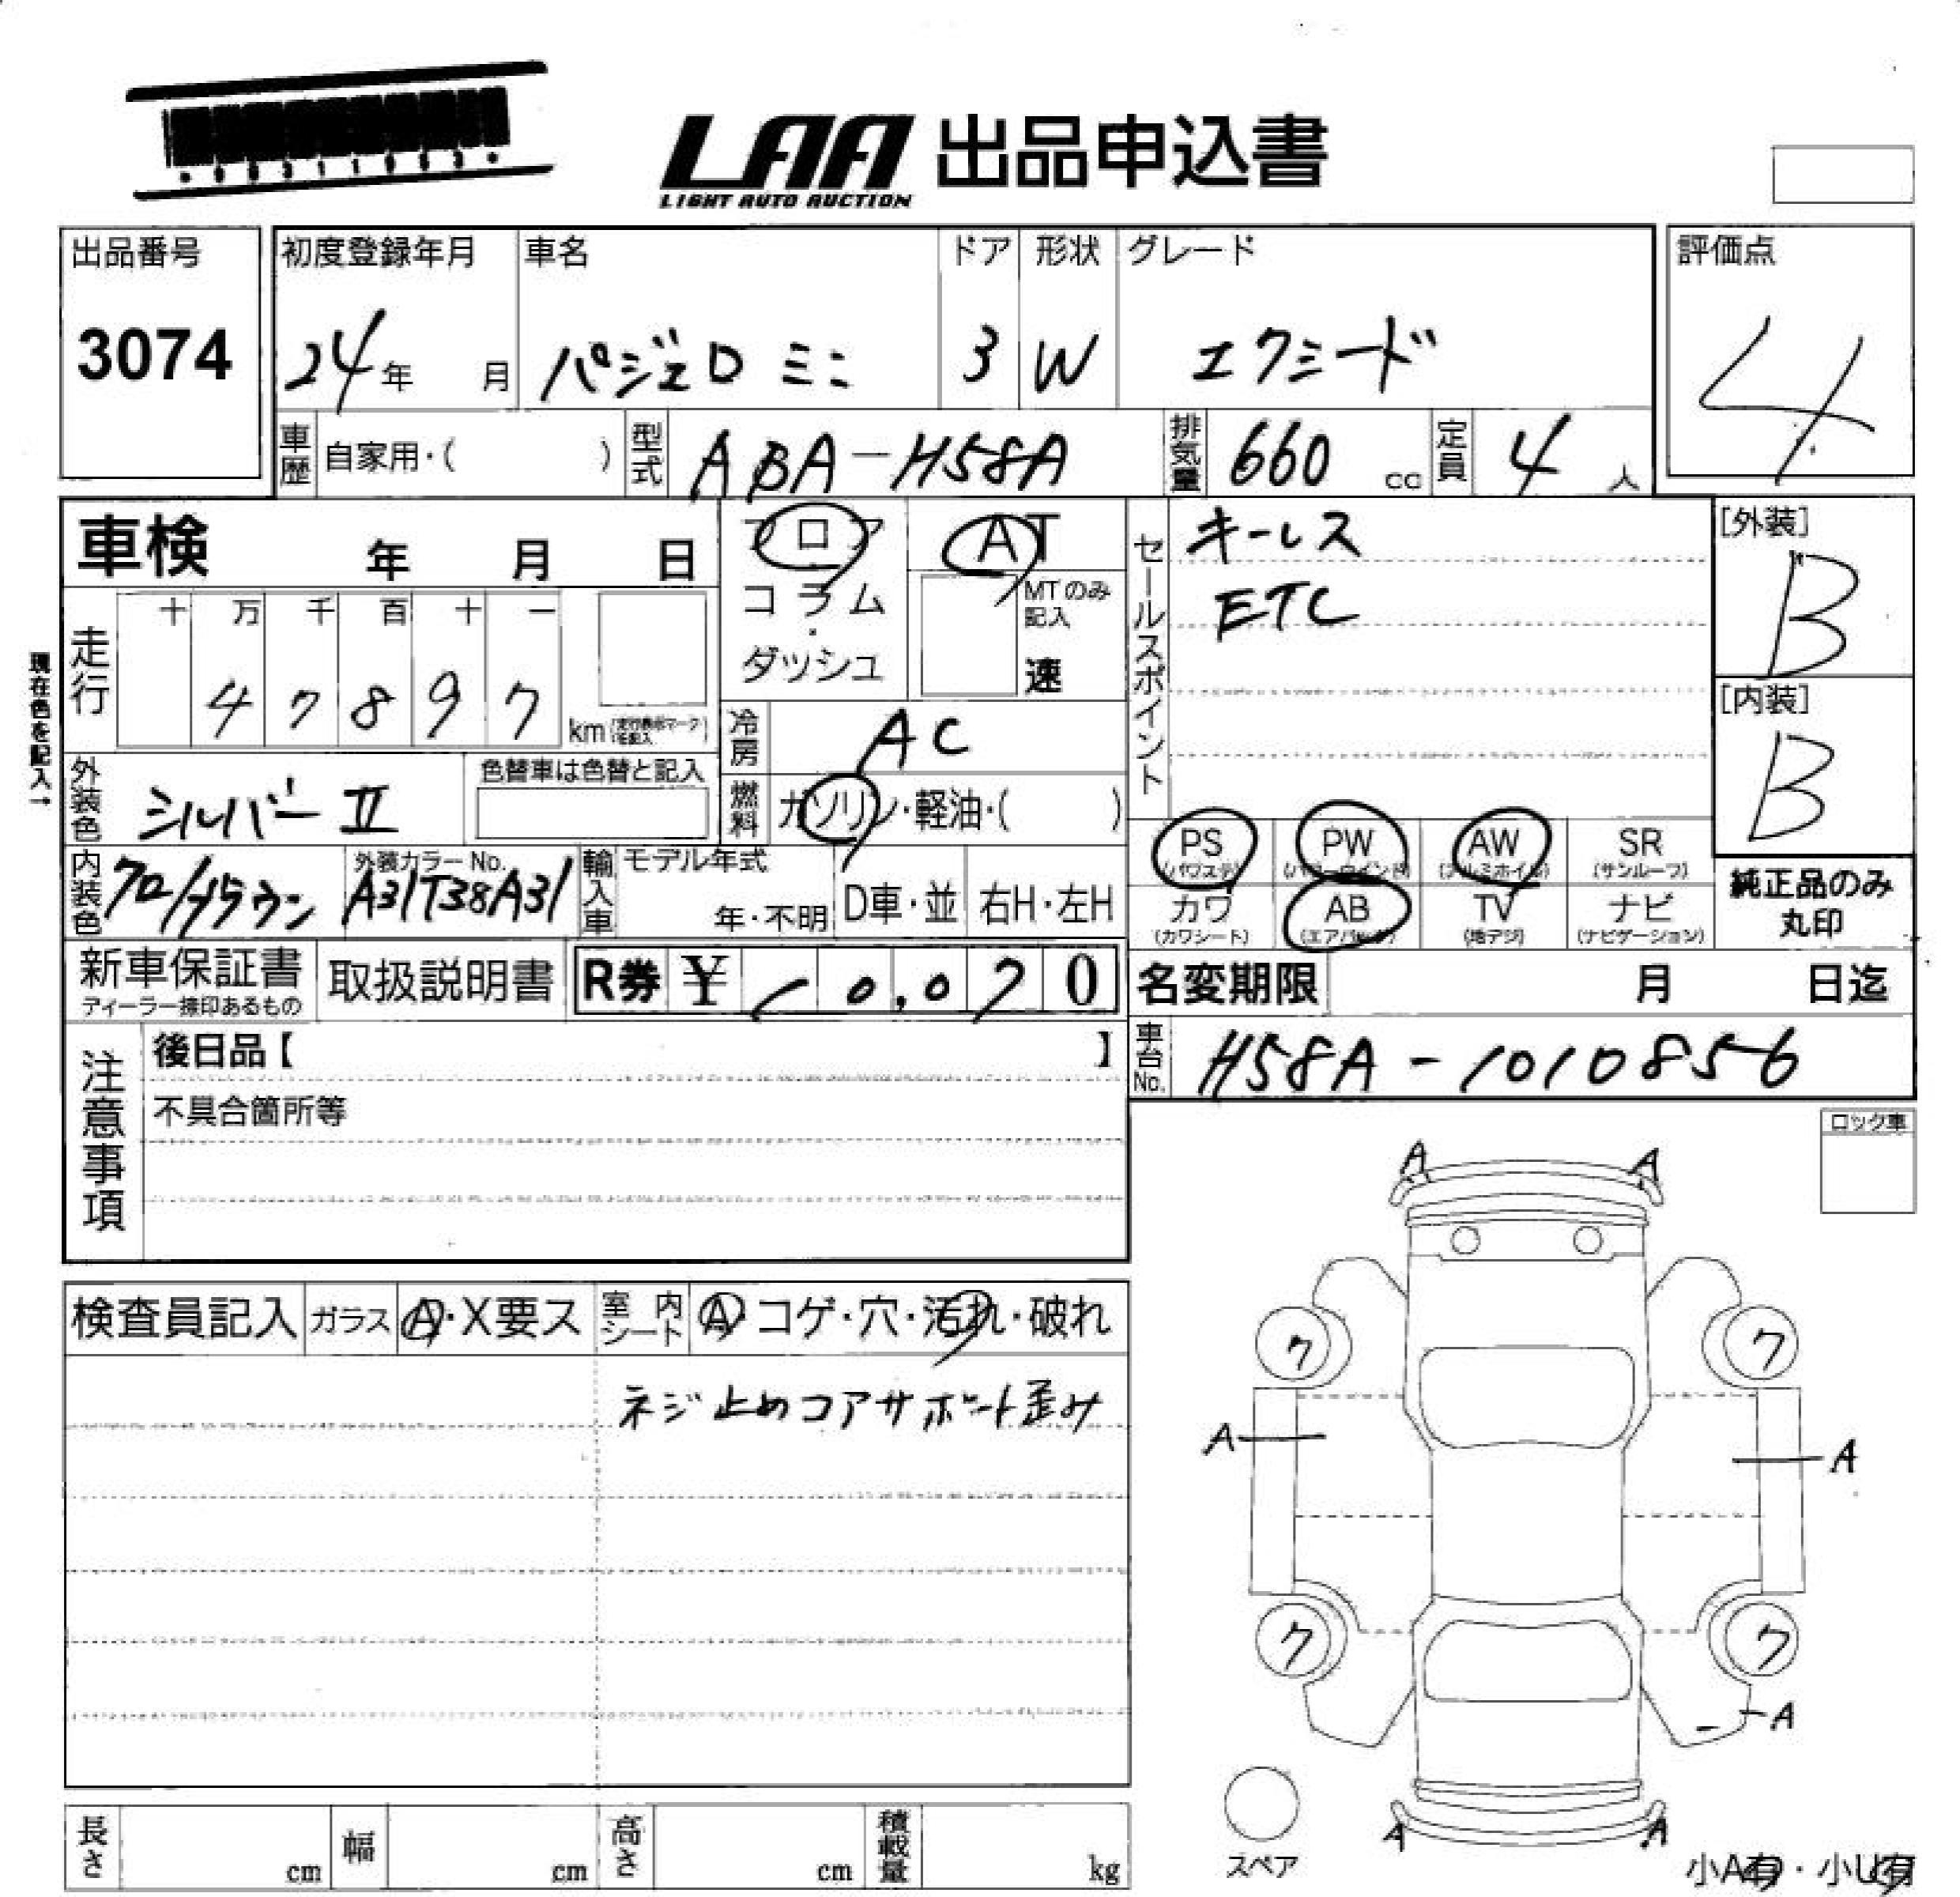 LAA 出品申込書
LIGHT AUTO AUCTION
出品番号
3074
初度登録年月 車名 ドア 形状 グレード
24年 月 パジェロ ミニ 3 W エクシード
評価点
4
車歴 自家用・( ) 型式 ABA-H58A 排気量 660 cc 定員 4 人
車検 年 月 日
フロア
コラム
・
ダッシュ
AT
MTのみ
記入
速
セールスポイント
キーレス
ETC
[外装]
B
[内装]
B
現在色を記入→
走行 十 万 千 百 十 一
4 7 8 9 7 km
冷房 AC
燃料 ガソリン・軽油・( )
外装色 シルバー II
色替車は色替と記入
PS PW AW SR
(パワステ) (パワーウインド) (アルミホイル) (サンルーフ)
カワ AB TV ナビ
(カワシート) (エアバック) (地デジ) (ナビゲーション)
純正品のみ
丸印
内装色
外装カラーNo.
A31T38A31
輸入車 モデル年式
年・不明 D車・並 右H・左H
新車保証書
ディーラー捺印あるもの
取扱説明書 R券 ¥ 10,070
名変期限 月 日迄
車台No. H58A-1010856
注意事項
後日品【 】
不具合箇所等
ロック車
検査員記入 ガラス A・X要ス 室内シート A・コゲ・穴・汚れ・破れ
ネジ止めコアサポート歪み
A A
ク ク
A A
ク ク
A
A A
スペア
小A有・小U有
長さ cm 幅 cm 高さ cm 積載量 kg